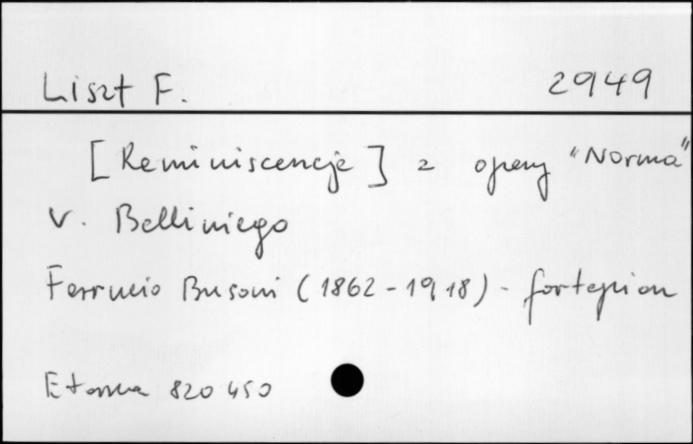 Liszt F. 2949
[Reminiscencje] z opery "Norma"
V. Belliniego
Ferrucio Busoni (1862-1918) - fortepian
Eterna 820 450